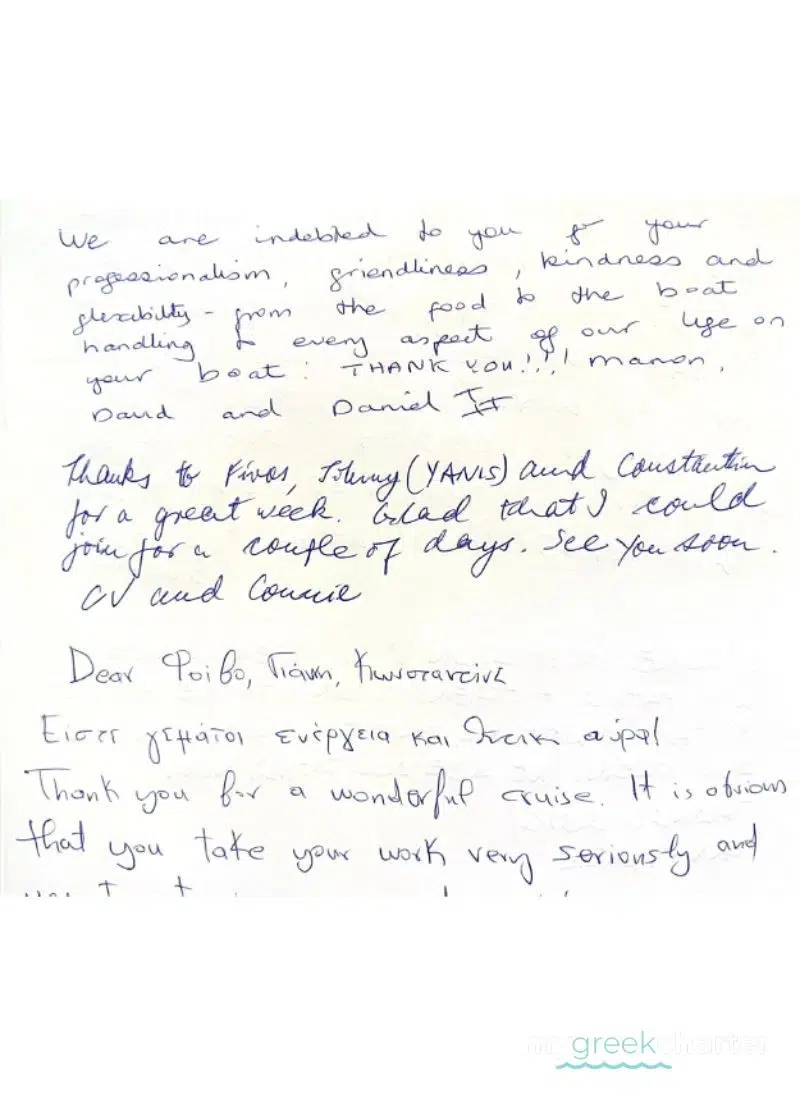 We are indebted to you for your
professionalism, friendliness, kindness and
flexibilty - from the food to the boat
handling to every aspect of our life on
your boat! THANK YOU!!! manon,
David and Daniel
Thanks to Fivos, Johnny (YANIS) and Constantin
for a great week. Glad that I could
join for a couple of days. See you soon.
CV and Connie
Dear Φοίβο, Γιάννη, Κωνσταντίνε
Είστε γεμάτοι ενέργεια και θετική αύρα!
Thank you for a wonderful cruise. It is obvious
that you take your work very seriously and
my greek charter